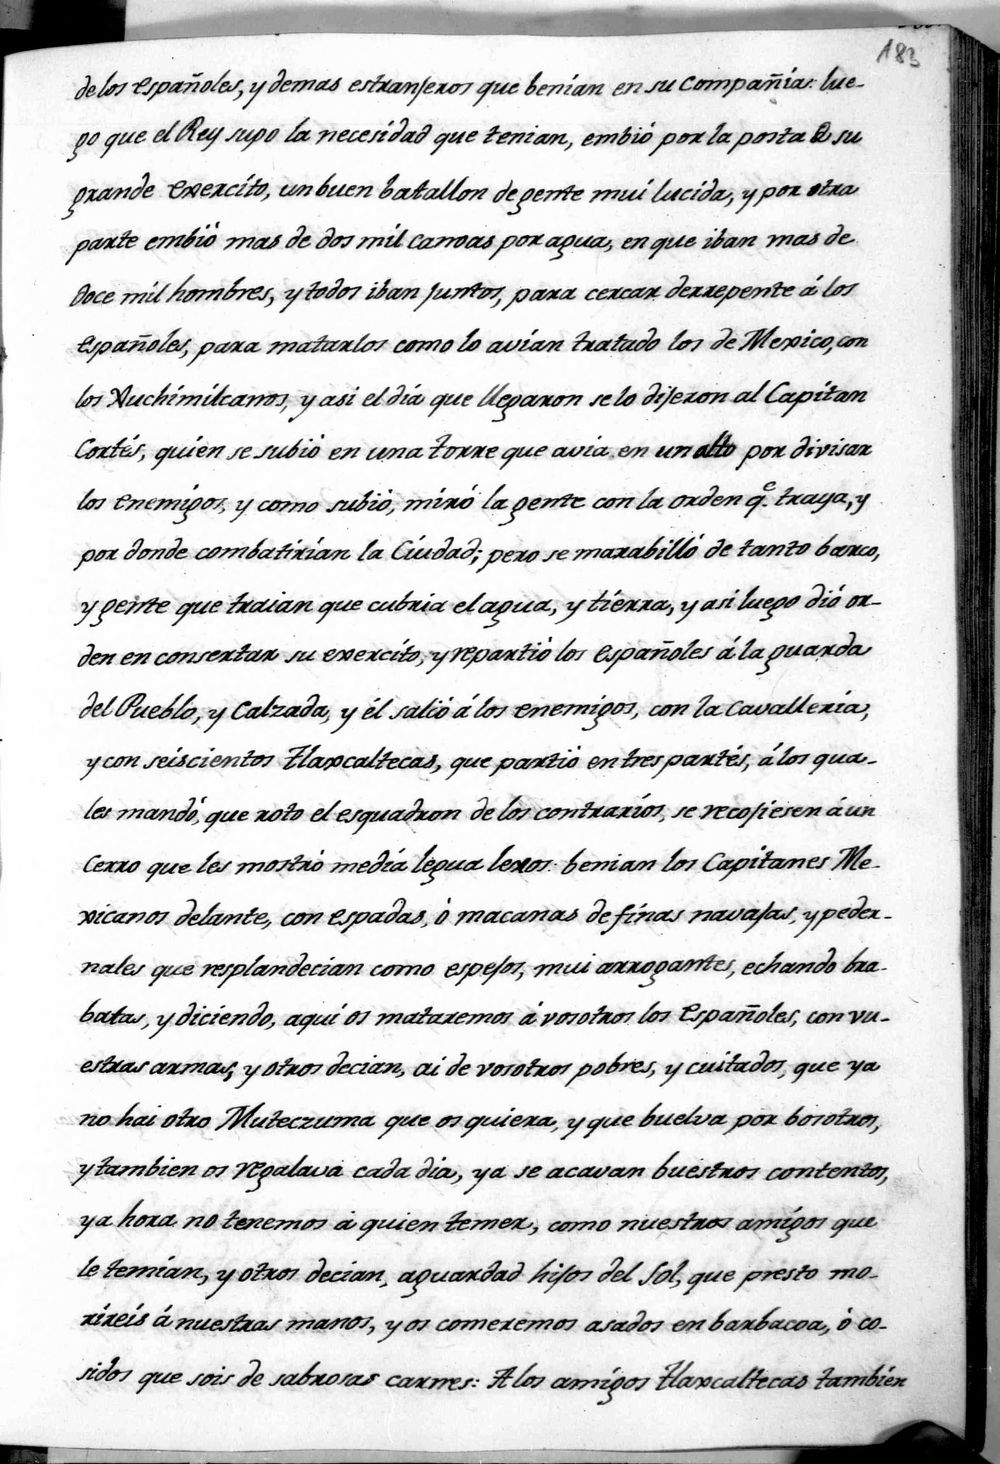 183
de los españoles, y demas estranjeros que benían en su compañía: lue-
go que el Rey supo la necesidad que tenian, embió por la posta de su
grande exercíto, un buen batallon de gente muí lucida, y por otra
parte embió mas de dos mil canoas por agua, en que iban mas de
doce mil hombres, y todos iban juntos, para cercar derrepente á los
españoles, para matarlos como lo avían tratado los de Mexico, con
los Xuchimilcanos, y asi el día que llegaron se lo dijeron al Capítan
Cortés, quíen se subió en una torre que avia en un alto por divisar
los enemígos, y como subió, miró la gente con la orden q.e traya, y
por donde combatirían la Cíudad; pero se marabilló de tanto barco,
y gente que traian que cubria el agua, y tíerra, y asi luego dió or-
den en consertar su exercíto, y repartió los españoles á la guarda
del Pueblo, y Calzada, y él salió á los enemígos, con la cavallería,
y con seíscientos tlaxcaltecas, que partió en tres partés, á los qua-
les mandó, que roto el esquadron de los contraríos, se recojiesen á un
cerro que les mostró medía legua lexos: benian los Capitanes Me-
xicanos delante, con espadas, ó macanas de fínas navajas, y peder-
nales que resplandecian como espejos, mui arrogantes, echando bra-
batas, y diciendo, aquí os mataremos á vosotros los españoles, con vu-
estras armas; y otros decian, ai de vosotros pobres, y cuitados, que ya
no hai otro Muteczuma que os quiera, y que buelva por bosotros,
y tambien os regalava cada dia, ya se acavan buestros contentos,
ya hora no tenemos á quien temer, como nuestros amígos que
le temían, y otros decian, aguardad hijos del Sol, que presto mo-
riréis á nuestras manos, y os comeremos asados en barbacoa, ó co-
sidos que sois de sabrosas carnes: A los amígos tlaxcaltecas tambíen